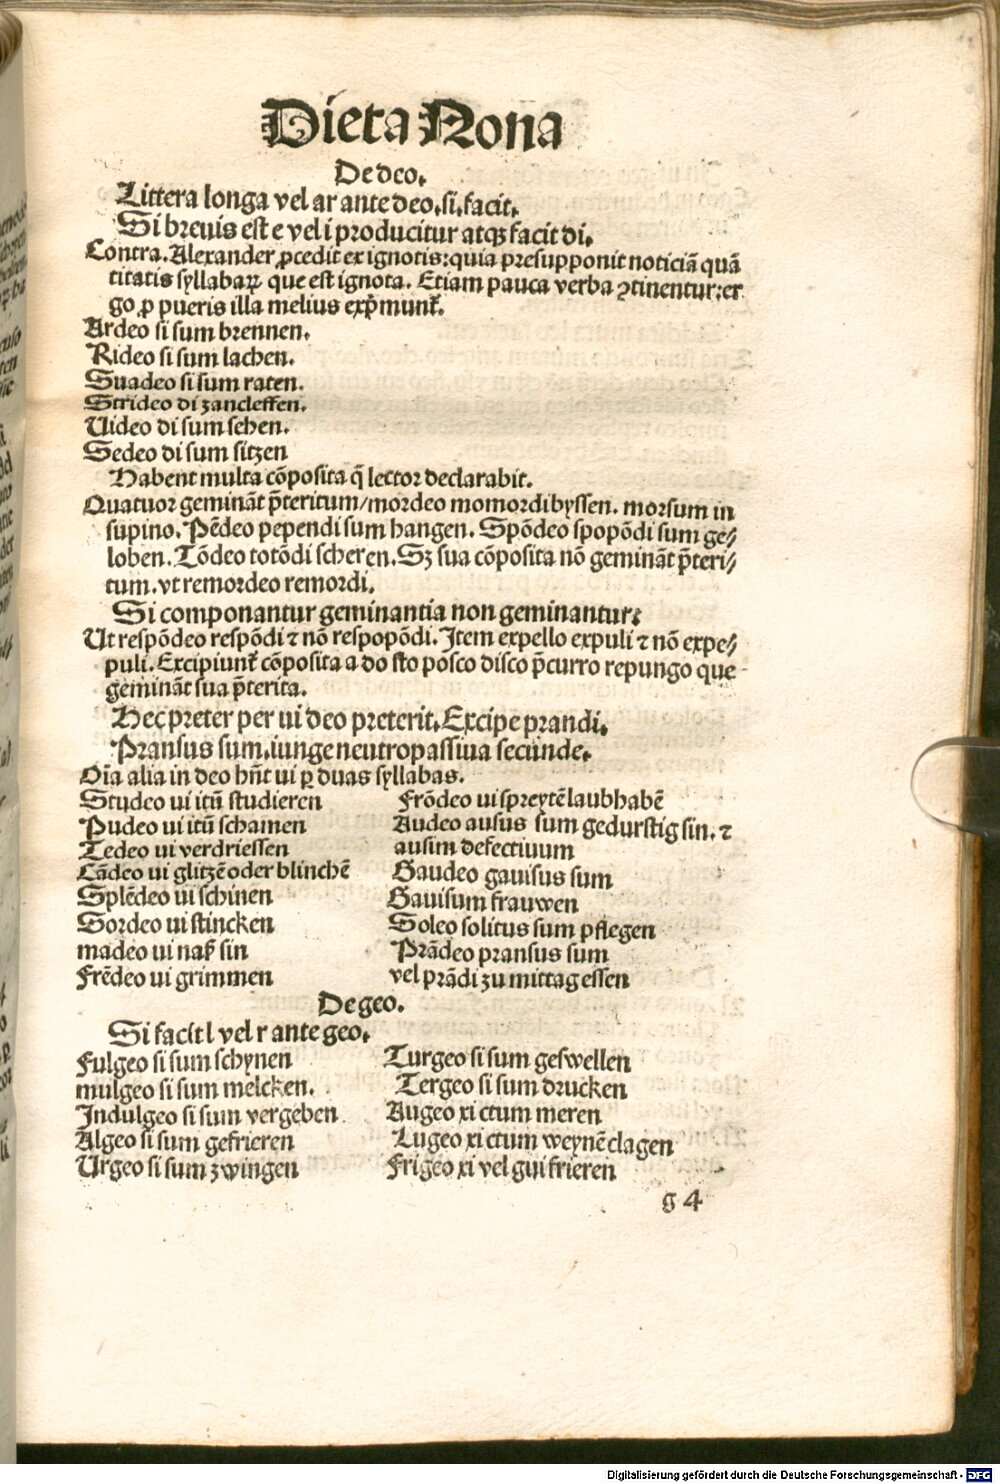 Dieta Nona
De deo.
Littera longa vel ar ante deo. si. facit.
Si breuis est e vel i producitur atqꝫ facit di.
Contra. Alexander ꝓcedit ex ignotis: quia presupponit noticiā quā
titatis syllabaꝝ que est ignota. Etiam pauca verba ꝯtinentur: er
go ꝓ pueris illa melius exp̄munt̄.
Ardeo si sum brennen.
Rideo si sum lachen.
Suadeo si sum raten.
Strideo di zancleffen.
Uideo di sum sehen.
Sedeo di sum sitzen
Habent multa cōposita q̄ lector declarabit.
Quatuor gemināt p̄teritum/mordeo momordi byssen. morsum in
supino. Pēdeo pependi sum hangen. Spōdeo spopōdi sum ge⸗
loben. Tōdeo totōdi scheren. Sꝫ sua cōposita nō gemināt p̄teri⸗
tum. vt remordeo remordi.
Si componantur geminantia non geminantur:
Ut respōdeo respōdi ⁊ nō respopōdi. Item expello expuli ⁊ nō expe⸗
puli. Excipiunt̄ cōposita a do sto posco disco p̄curro repungo que
gemināt sua p̄terita.
Hec preter per ui deo preterit. Excipe prandi.
Pransus sum. iunge neutropassiua secunde.
Oīa alia in deo hn̄t ui ꝑ duas syllabas.
Studeo ui itū studieren
Pudeo ui itū schamen
Tedeo ui verdriessen
Cādeo ui glitzē oder blinchē
Splēdeo ui schinen
Sordeo ui stincken
madeo ui naß sin
Frēdeo ui grimmen
Frōdeo ui spreytē laub habē
Audeo ausus sum gedurstig sin. ⁊
ausim defectiuum
Gaudeo gauisus sum
Gauisum frauwen
Soleo solitus sum pflegen
Prādeo pransus sum
vel prādi zu mittag essen
De geo.
Si facit l vel r ante geo.
Fulgeo si sum schynen
mulgeo si sum melcken.
Indulgeo si sum vergeben
Algeo si sum gefrieren
Urgeo si sum zwingen
Turgeo si sum geswellen
Tergeo si sum drucken
Augeo xi ctum meren
Lugeo xi ctum weynē clagen
Frigeo xi vel gui frieren
g 4
Digitalisierung gefördert durch die Deutsche Forschungsgemeinschaft - DFG